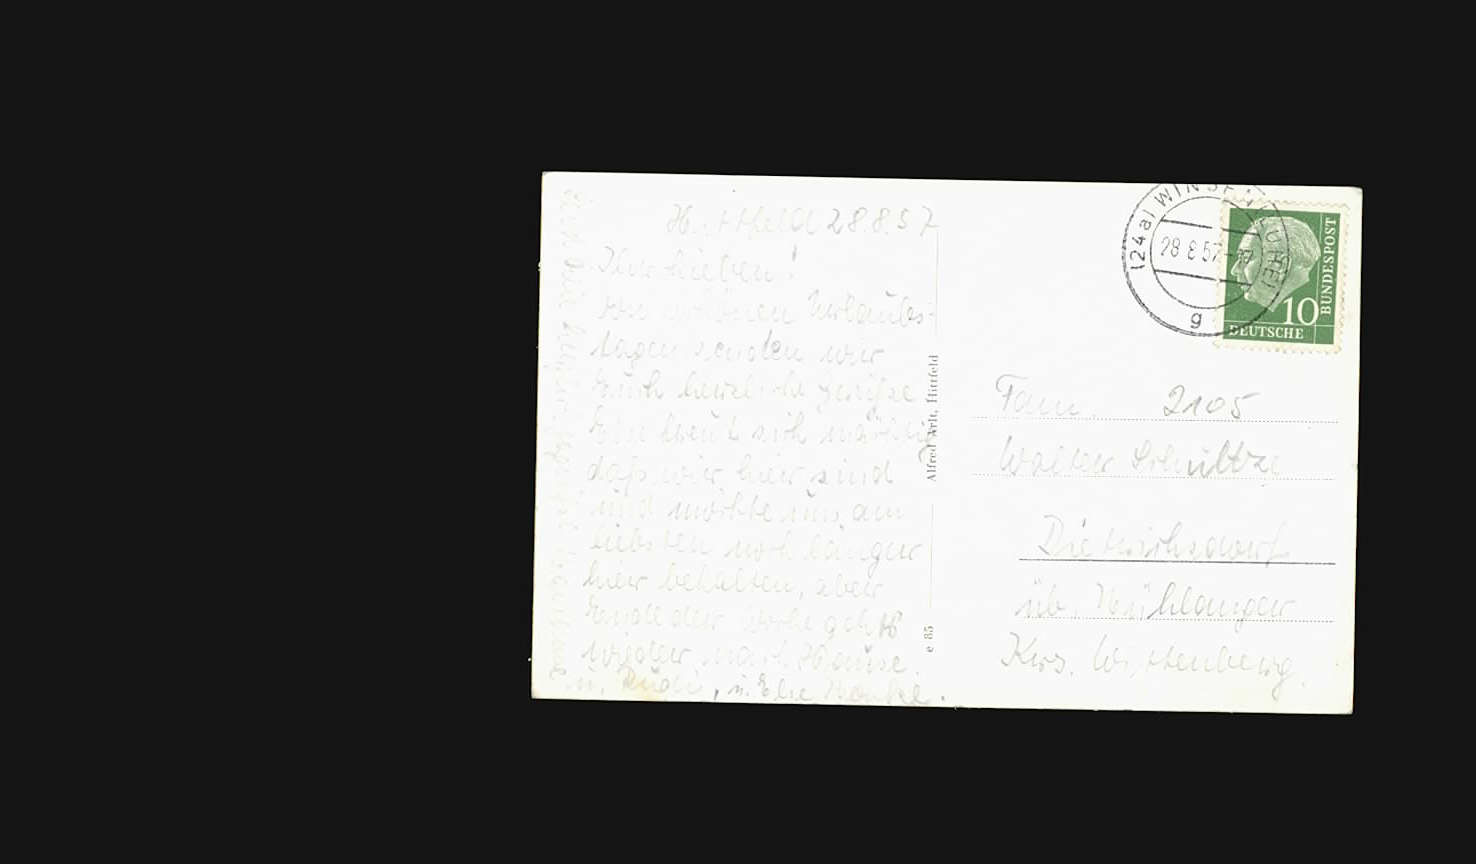 Hittfeld 28.8.57
Ihr Lieben!
Von schönen Urlaubs-
tagen senden wir
Euch herzliche Grüße
freut sich mächtig
daß wir hier sind
und möchte uns am
liebsten noch länger
hier behalten, aber
Ende der Woche geht's
wieder nach Hause.
u. Rudi, u. Else
Alfred Arlt, Hittfeld
e 85
(24a) WINSEN (LUHE)
28.8.57
g
10
DEUTSCHE
BUNDESPOST
Fam. 2105
Walter Schultze
Dietrichsdorf
üb. Mühlanger
Krs. Wittenberg.